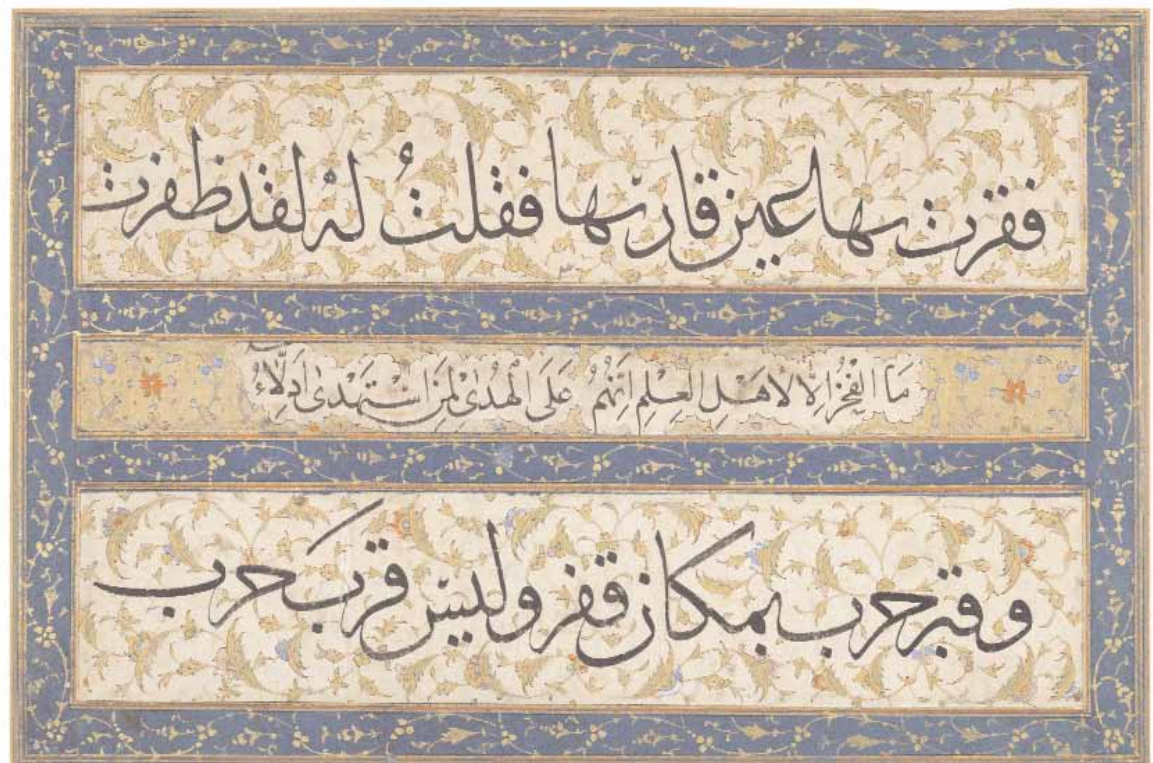 فقرت بها عين قاريها فقلتُ لهُ لقد ظفرت
مَا الفَخرُ اِلَّا لاَهَلِ العِلِمِ اِنَهُمُ عَلَى الهُدىٰ لمِنَ اسْتَهدىٰ اَدِلَّاءُ
وقبر حرب بمكان قفر وليس قرب حرب